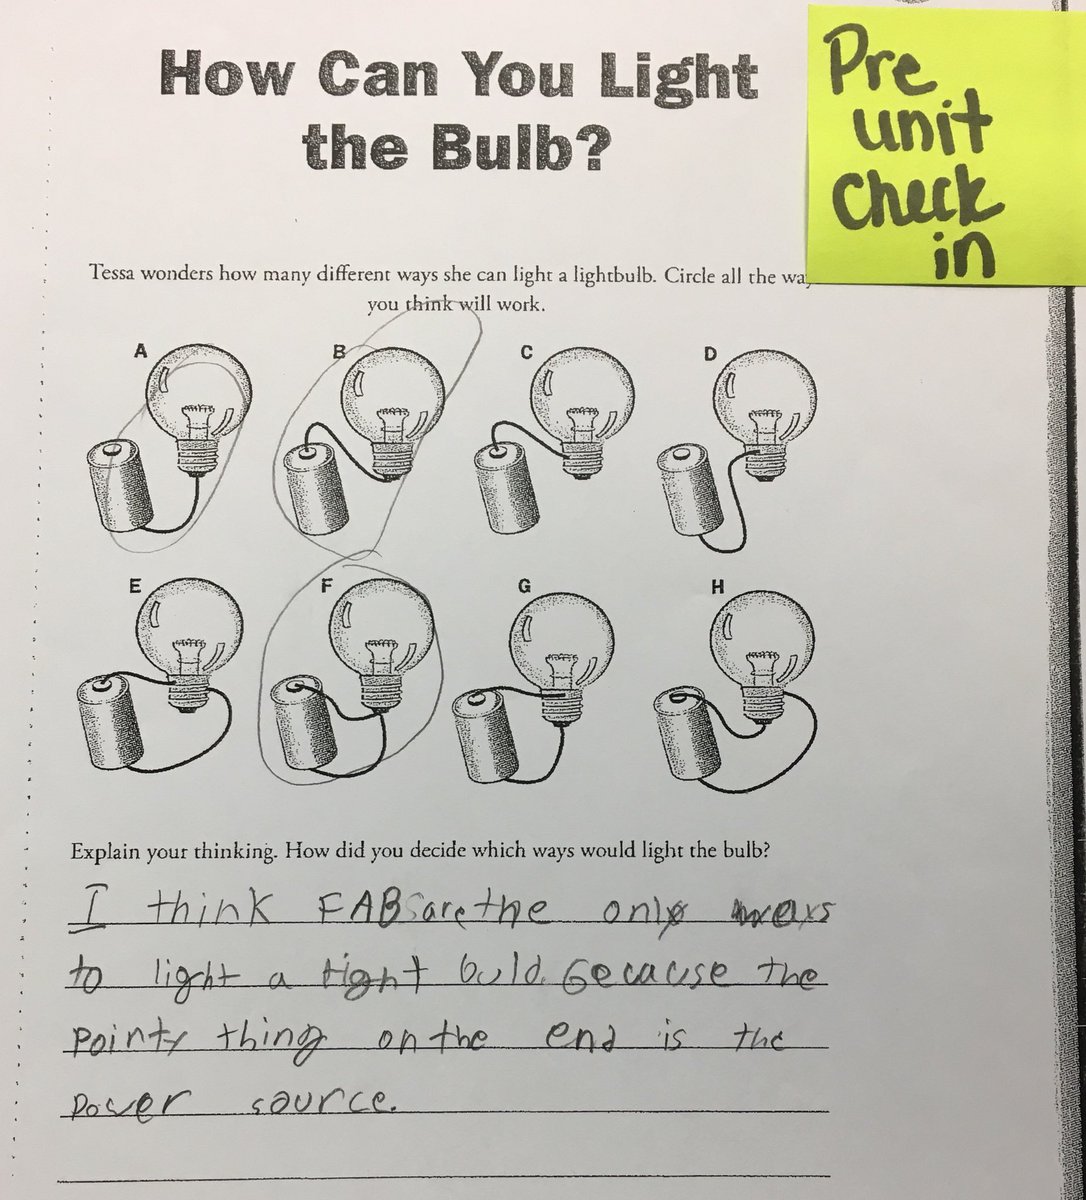 How Can You Light
the Bulb?
Pre
unit
Check
in
Tessa wonders how many different ways she can light a lightbulb. Circle all the wa
you think will work.
A
B
C
D
E
F
G
H
Explain your thinking. How did you decide which ways would light the bulb?
I think FABs are the only ways
to light a light buld. Because the
Pointy thing on the end is the
power source.